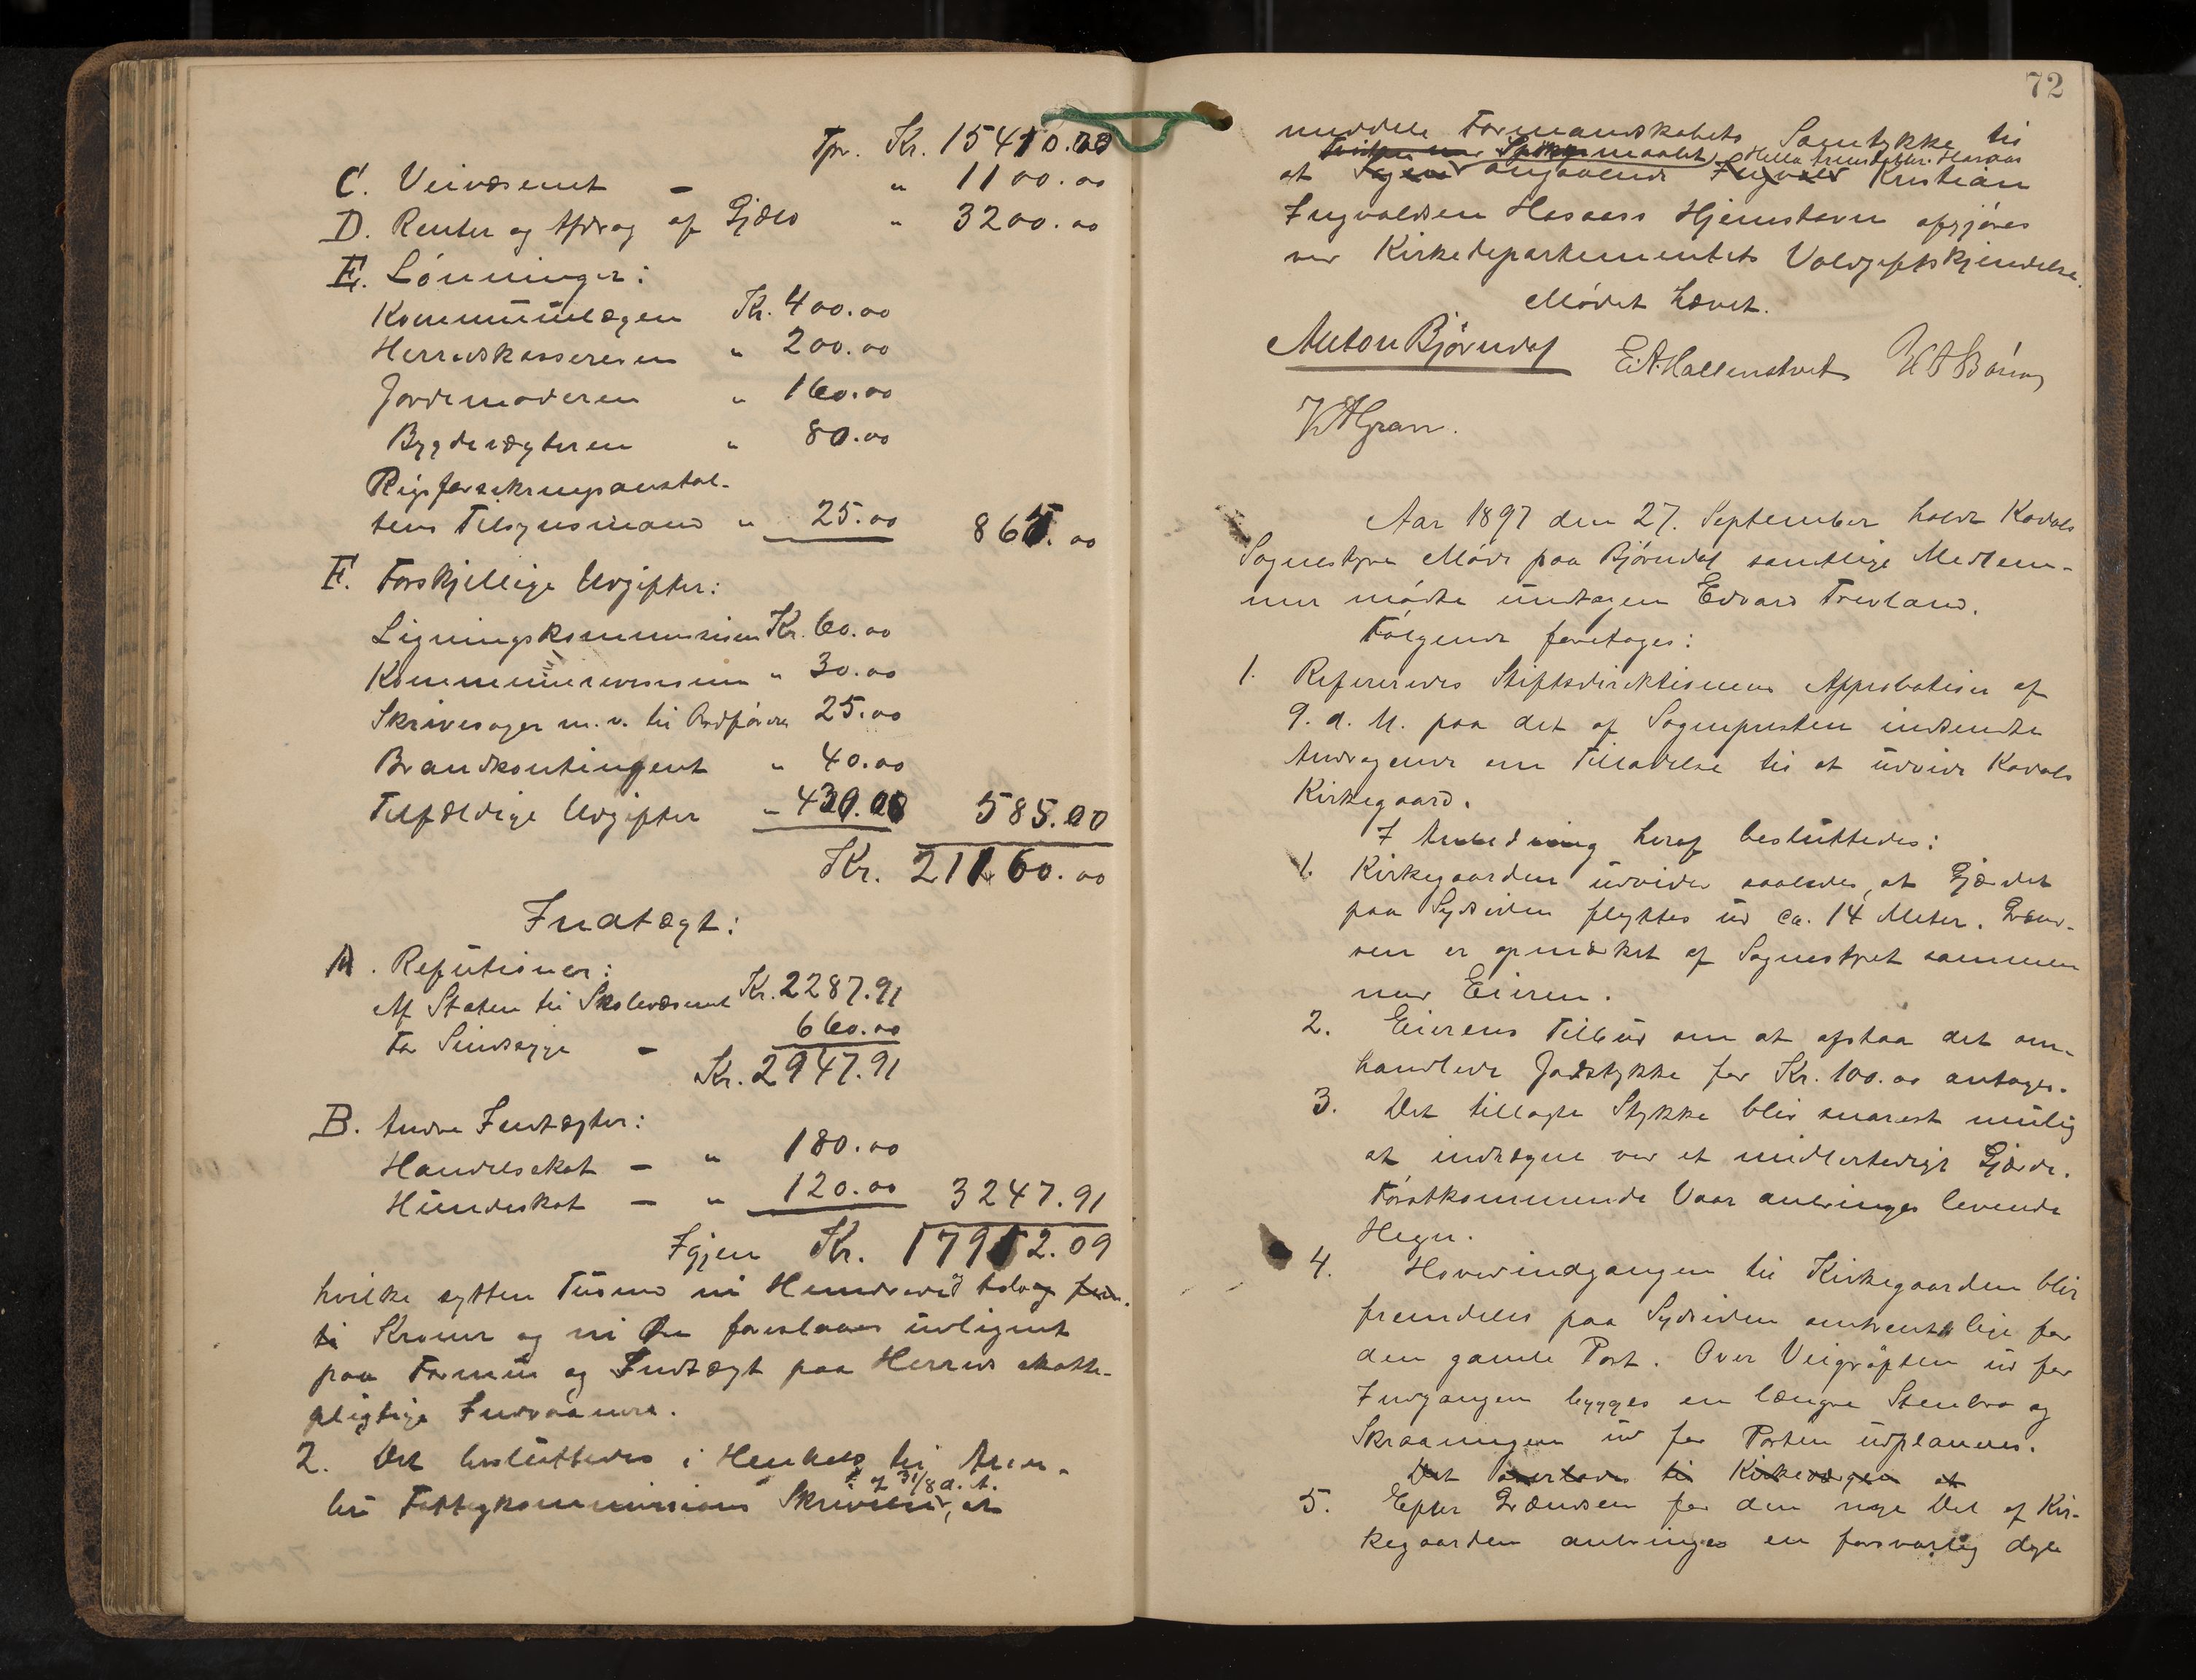 Tpr. Kr. 15410.00
C. Veivæsenet – " 1100.00
D. Renter og Afdrag af Gjæld " 3200.00
E. Lønninger:
Kommunelægen Kr. 400.00
Herredskassereren " 200.00
Jordemoderen " 160.00
Bygdevægteren " 80.00
Rigsforsikringsanstal-
tens Tilsynsmand " 25.00 865.00
F. Forskjellige Udgifter:
Ligningskommissionen Kr. 60.00
Kommunerevisionen " 30.00
Skrivesager m.v. til Ordføreren 25.00
Brandkontingent " 40.00
Tilfældige Udgifter " 430.00 585.00
Kr. 21160.00
Indtægt:
A. Refutioner:
Af Staten til Skolevæsenet Kr. 2287.91
For Sindssyge – 660.00
Kr. 2947.91
B. Andre Indtægter:
Handelsskat – " 180.00
Hundeskat – " 120.00 3247.91
Igjen Kr. 17912.09
hvilke sytten Tusind ni Hundrede og tolv
Kroner og ni Øre foreslaaes udlignet
paa Formue og Indtægt paa Herreds skatte-
pligtige Indvaanere.
2. Det besluttedes i Henhold til Aren-
dal Fattigkommissions Skrivelse af 31/8 d. A., at
72
meddele Formandskabets Samtykke til
at angaaende Kristian
Ingvaldsen Haraas Hjemstavn afgjøres
ved Kirkedepartementets Voldgiftskjendelse.
Mødet hævet.
Anton Bjørndal E.A. Hallenstvet
K A Gran.
Aar 1897 den 27. September holdt
Sognestyre Møde paa Bjørndal samtlige Medlem-
mer mødte undtagen Edvard Trevland.
Følgende foretoges:
1. Refereredes Stiftsdirektionens Approbation af
9. d. M. paa det af Sognepresten indsendte
Andragende om Tilladelse til at udvide
Kirkegaard.
I Anledning heraf besluttedes:
1. Kirkegaarden udvides saaledes, at Gjærdet
paa Sydsiden flyttes ud ca. 14 Meter. Græn-
sen er opmærket af Sognestyret sammen
med Eieren.
2. Eierens Tilbud om at afstaa det om-
handlede Jordstykke for Kr. 100.00 antages.
3. Det tillagte Stykke blir snarest mulig
at indhegne ved et midlertidigt Gjærde.
Førstkommende Vaar anbringes levende
Hegn.
4. Hovedindgangen til Kirkegaarden blir
fremdeles paa Sydsiden omtrent lige for
den gamle Port. Over Veigrøften ud for
Indgangen bygges en længre Stenbro og
Skraaningen ud for Porten udplaneres.
Det overlades til Kirkeværgen at
5. Efter Grændsen for den nye Del af Kir-
kegaarden anbringes en forsvarlig dyb